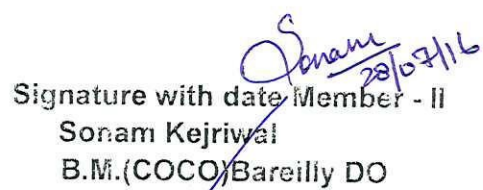 Sonam
28/07/16
Signature with date Member - II
Sonam Kejriwal
B.M.(COCO)Bareilly DO